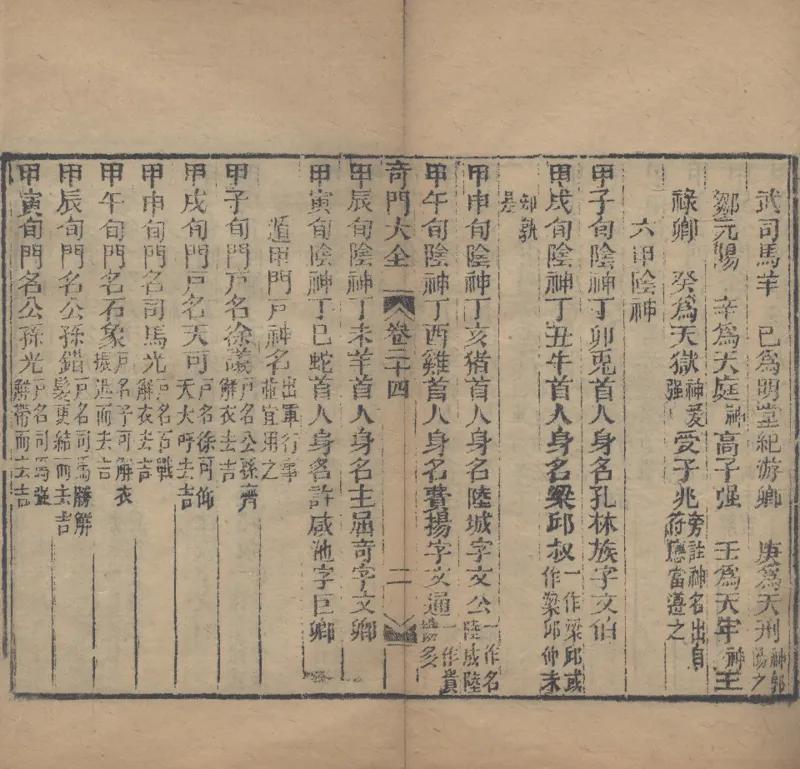 武司馬羊　巳為明堂紀游卿　庚為天刑神鄧陽之
鄒元陽　辛為天庭神高子强　壬為天牢神王
祿卿　癸為天獄神爰子兆强旁註神名出自符應當遵之
六甲陰神
甲子旬陰神丁卯兎首人身名孔林族字文伯
甲戌旬陰神丁丑牛首人身名梁邱叔一作梁邱或作梁邱仲未
甲申旬陰神丁亥猪首人身名陸城字文公一作名陸成陸
甲午旬陰神丁酉雞首人身名費揚字文通一作費
奇門大全　卷二十四　二
甲辰旬陰神丁未羊首人身名王屈奇字文卿
甲寅旬陰神丁巳蛇首人身名許咸池字巨卿
遁甲門戸神名出軍行事並宜用之
甲子旬門戸名徐議戸名公孫齊解衣去吉
甲戌旬門戸名天可戸名徐可仰天大呼去吉
甲申旬門名司馬光戸名百戰解衣去吉
甲午旬門名石象戸名子可解衣振進而去吉
甲辰旬門名公孫錯戸名司馬勝解髮更結而去吉
甲寅旬門名公孫光戸名司馬强解帶而去吉